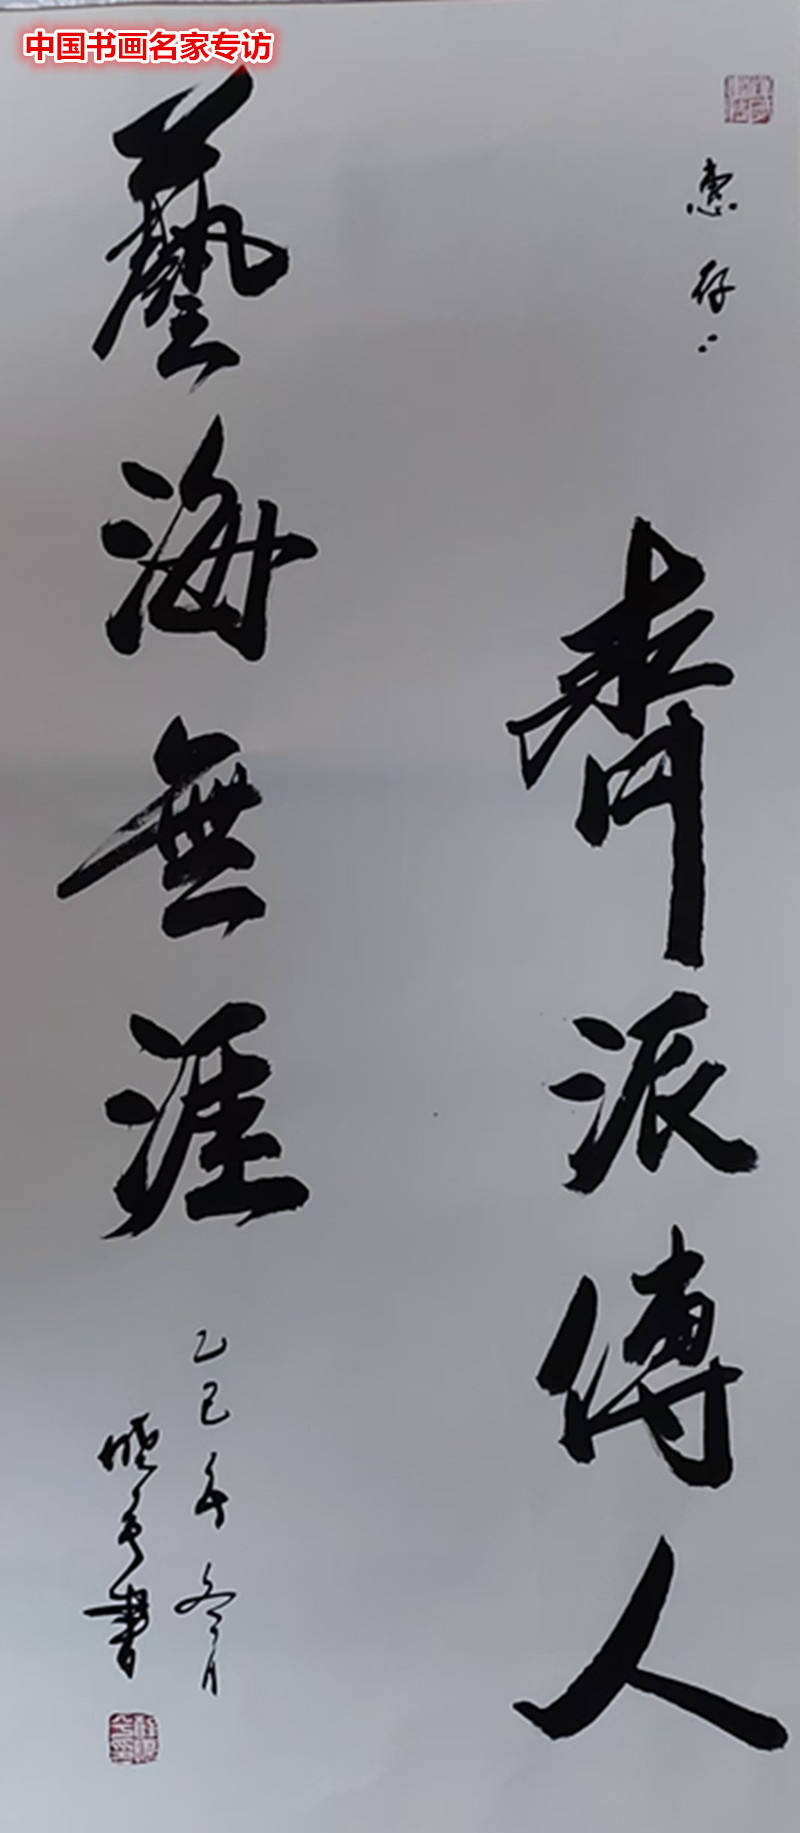 中国书画名家专访
惠存
齊派傳人
藝海無涯
乙巳年冬月
曉亭書